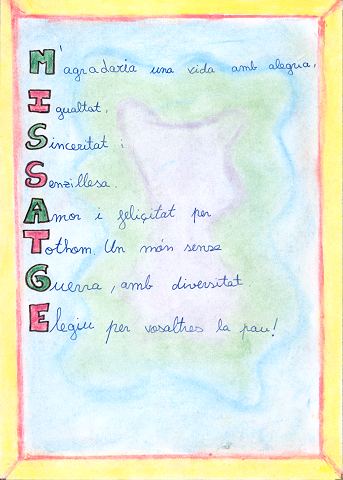 M'agradaria una vida amb alegria,
Igualtat,
Sinceritat i
Senzillesa.
Amor i feliçitat per
Tothom. Un món sense
Guerra, amb diversitat
Elegiu per vosaltres la pau!